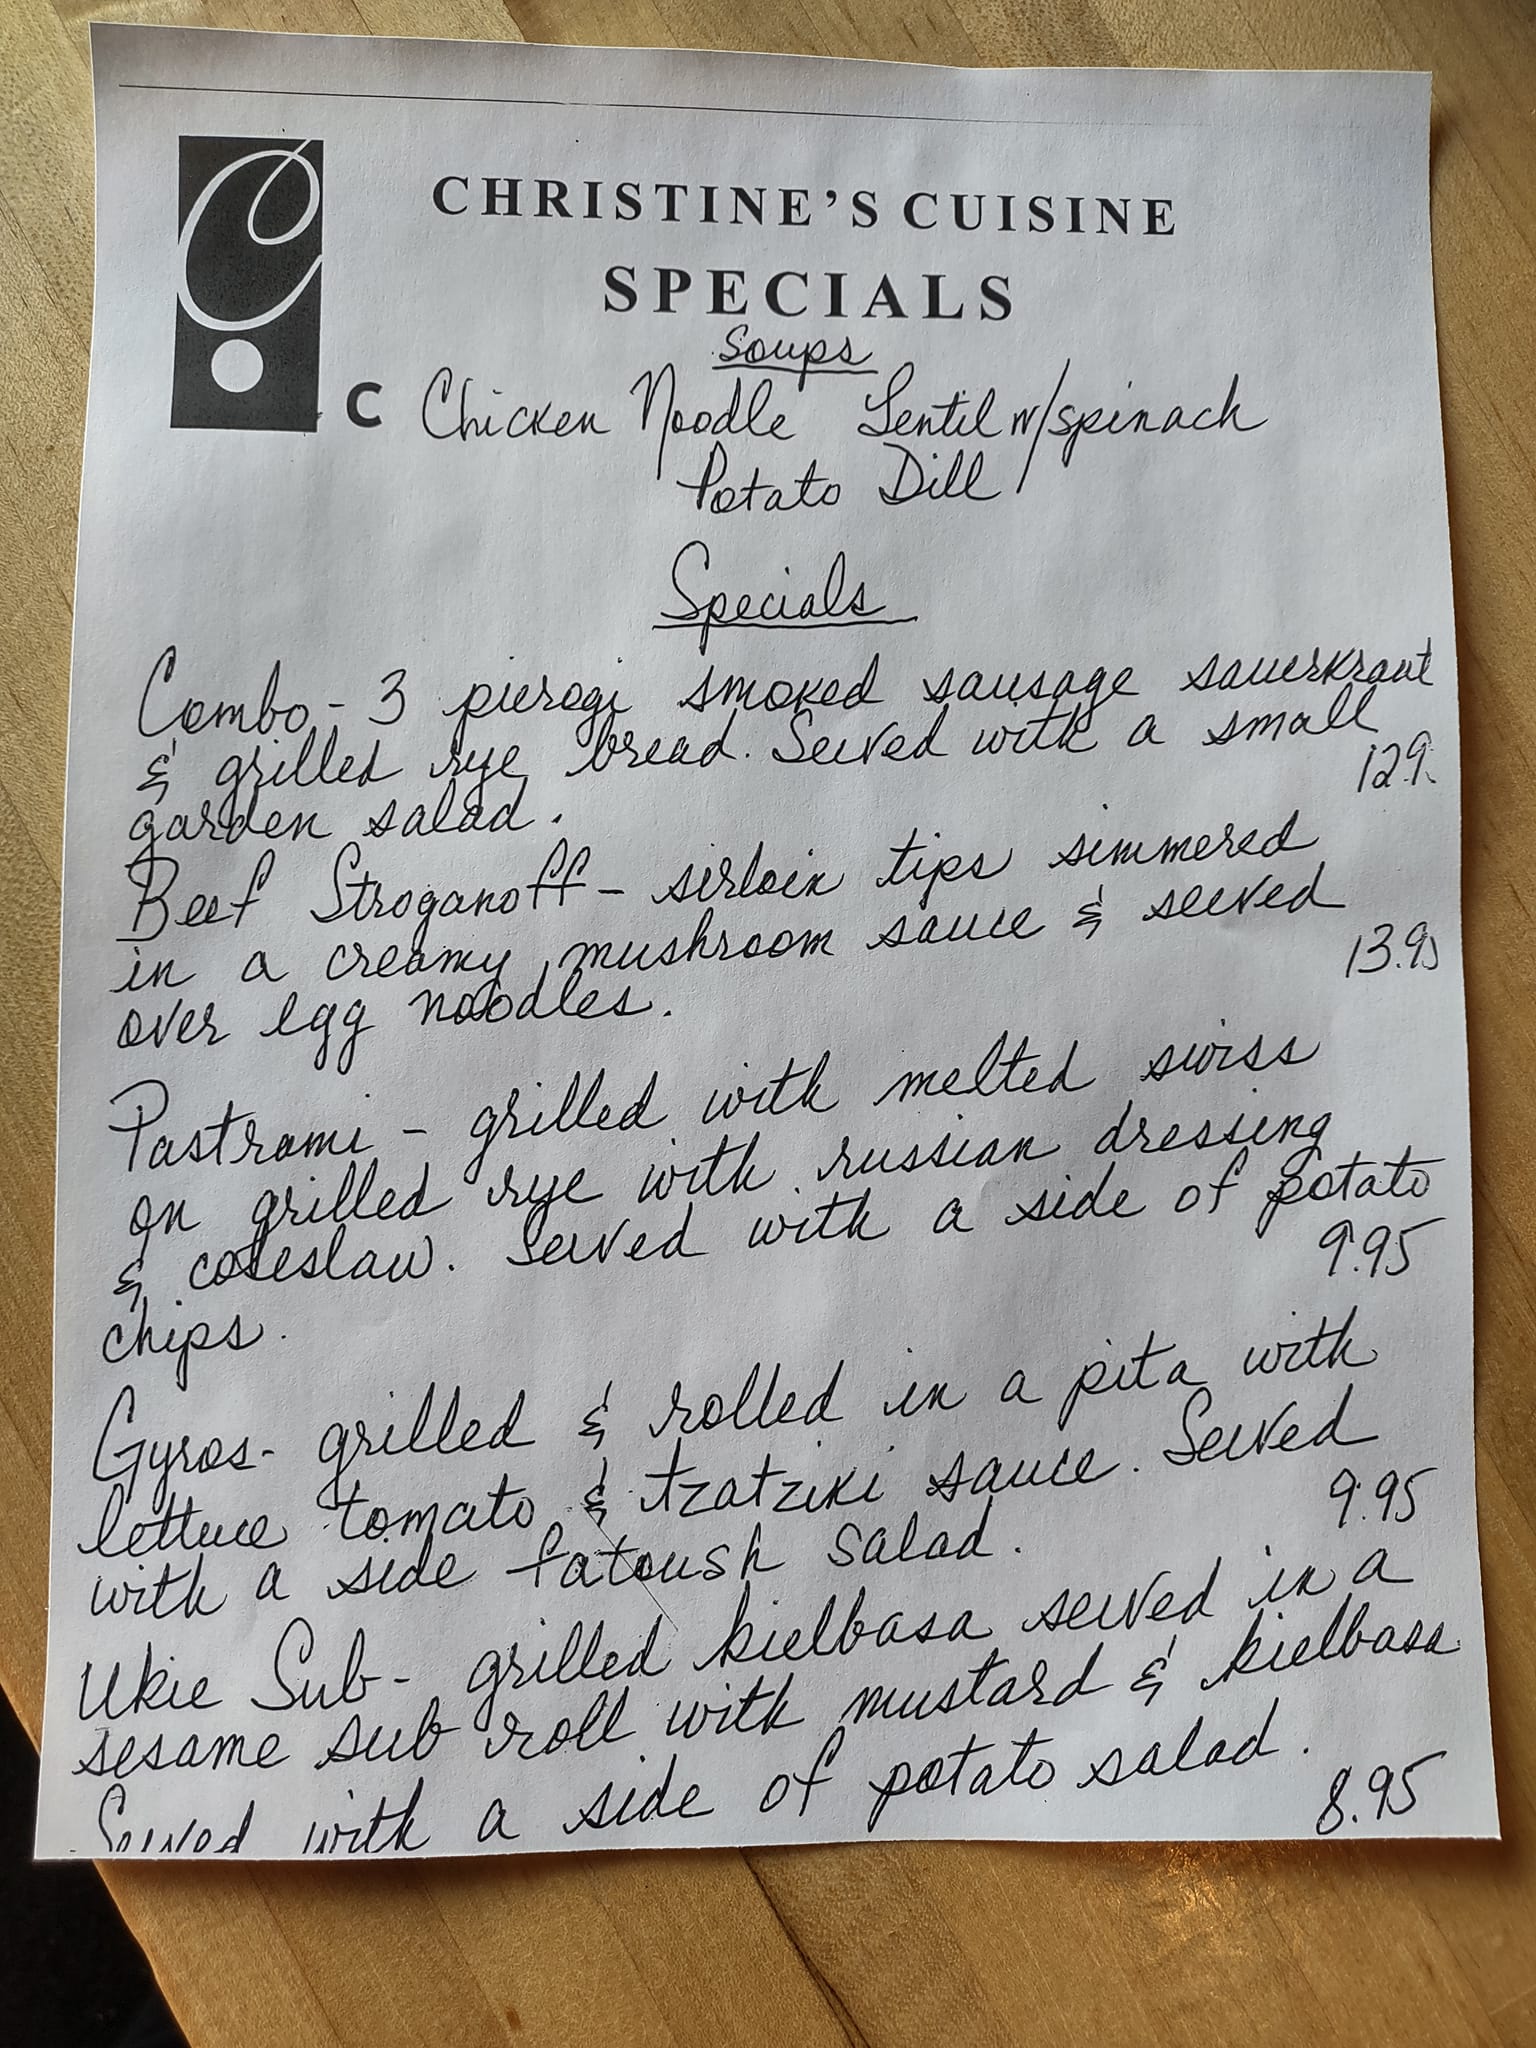 C
CHRISTINE'S CUISINE
SPECIALS
Soups
C Chicken Noodle Lentil w/spinach
Potato Dill
Specials
Combo - 3 pierogi smoked sausage sauerkraut
& grilled rye bread. Served with a small
garden salad. 12.9
Beef Stroganoff - sirloin tips simmered
in a creamy mushroom sauce & served
over egg noodles. 13.95
Pastrami - grilled with melted swiss
on grilled rye with russian dressing
& coleslaw. Served with a side of potato
chips. 9.95
Gyros - grilled & rolled in a pita with
lettuce tomato & tzatziki sauce. Served
with a side fatoush salad. 9.95
Ukie Sub - grilled kielbasa served in a
sesame sub roll with mustard & kielbasa
Served with a side of potato salad. 8.95